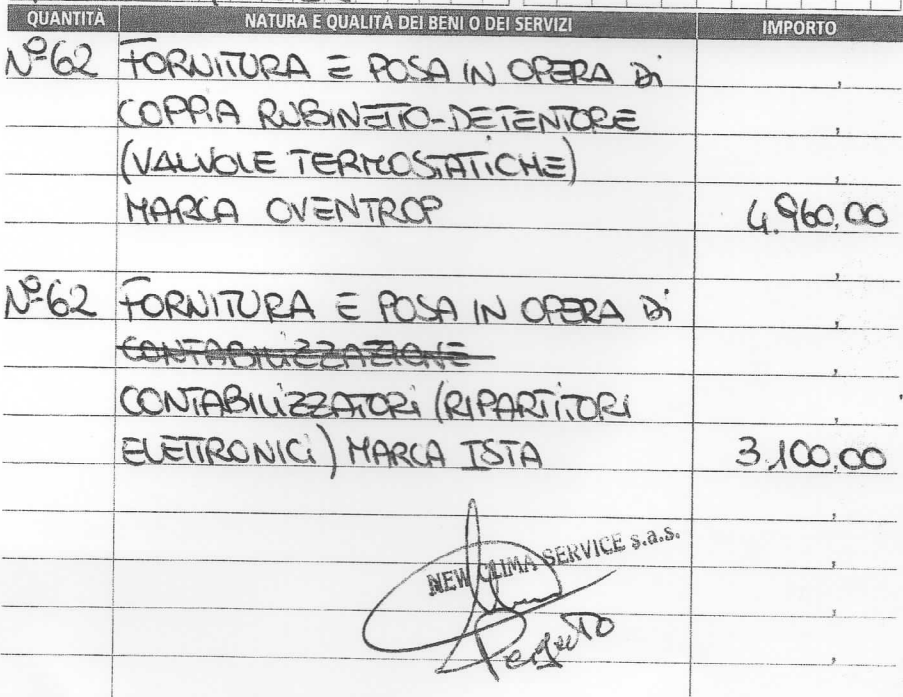 QUANTITÀ NATURA E QUALITÀ DEI BENI O DEI SERVIZI IMPORTO
Nº62 FORNITURA E POSA IN OPERA DI
COPPIA RUBINETTO-DETENTORE
(VALVOLE TERMOSTATICHE)
MARCA OVENTROP 4.960,00
Nº62 FORNITURA E POSA IN OPERA DI
CONTABILIZZAZIONE
CONTABILIZZATORI (RIPARTITORI
ELETTRONICI) MARCA ISTA 3.100,00
NEW CLIMA SERVICE s.a.s.